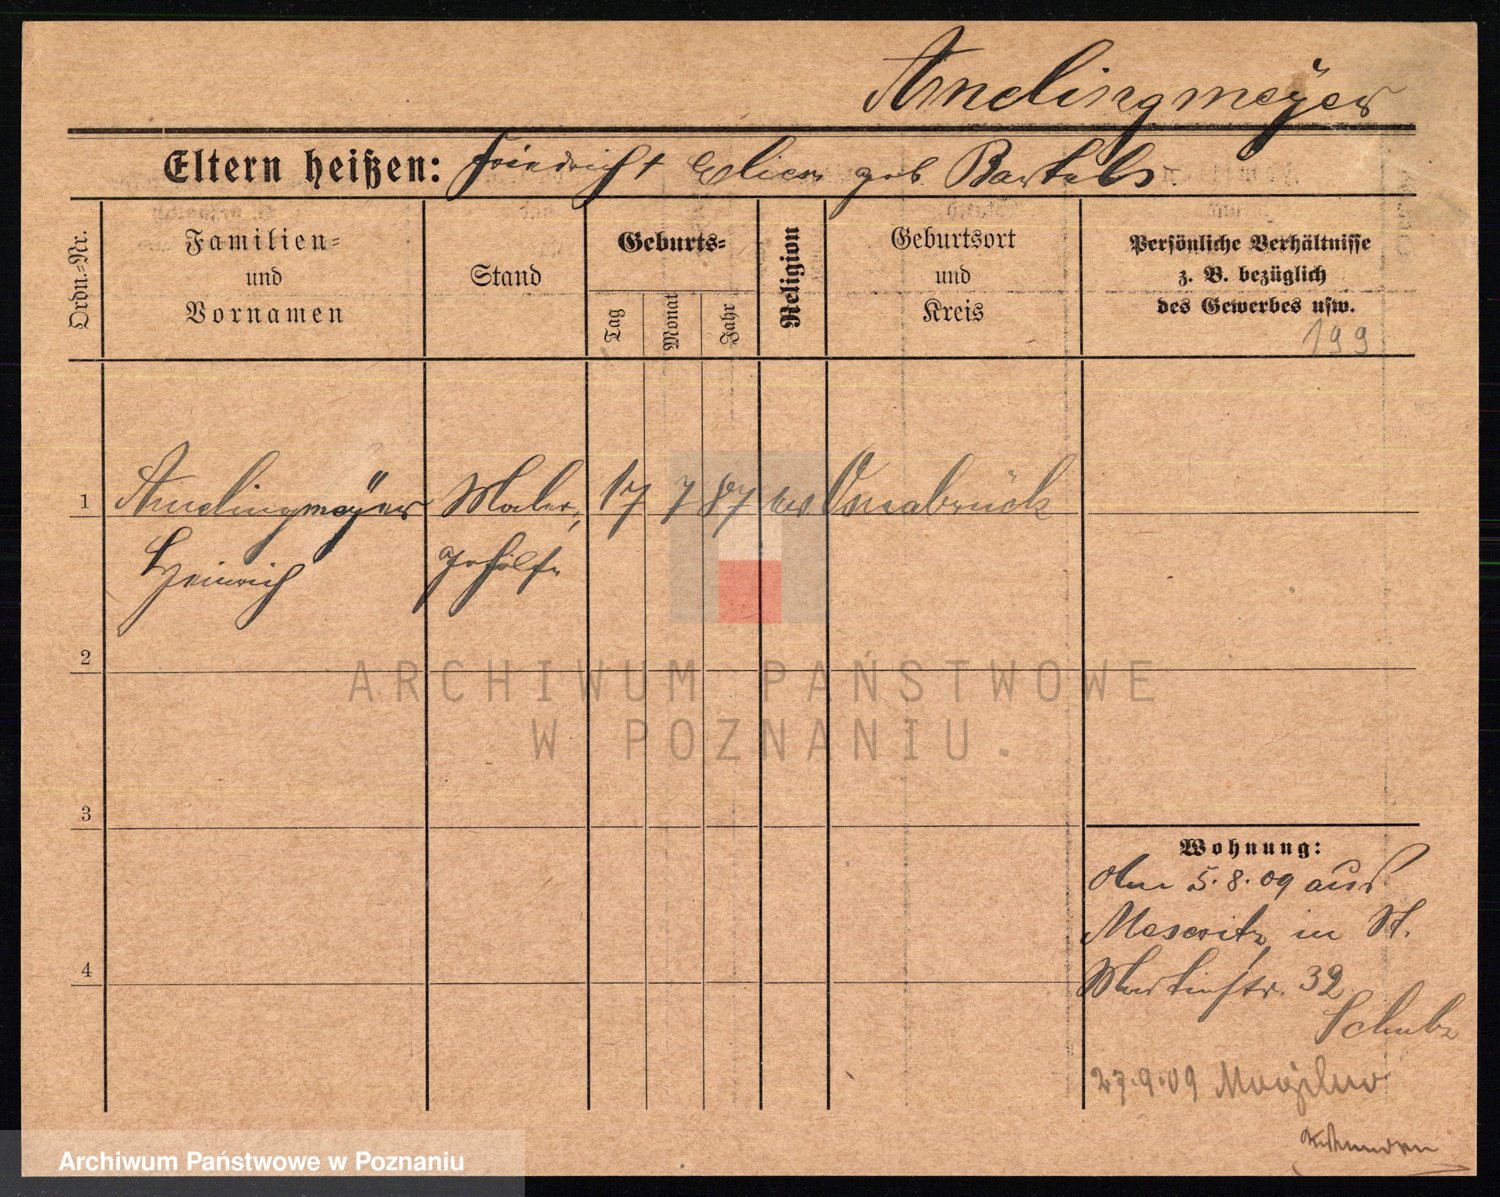 Amelingmeÿer
Eltern heißen: Friedrich + Elise geb Bartels
Ordn.-Nr.
Familien-
und
Vornamen
Stand
Geburts-
Tag
Monat
Jahr
Religion
Geburtsort
und
Kreis
Persönliche Verhältnisse
z. B. bezüglich
des Gewerbes usw.
199
1 Amelingmeÿer Maler, 17 7 87 ev Osnabrück
Heinrich gehilfe
2
3
4
Wohnung:
5.8.09 aus
Meseritz in St.
Martinstr. 32
Schulz
27.9.09 Mogilno
ARCHIWUM PAŃSTWOWE
W POZNANIU.
Archiwum Państwowe w Poznaniu